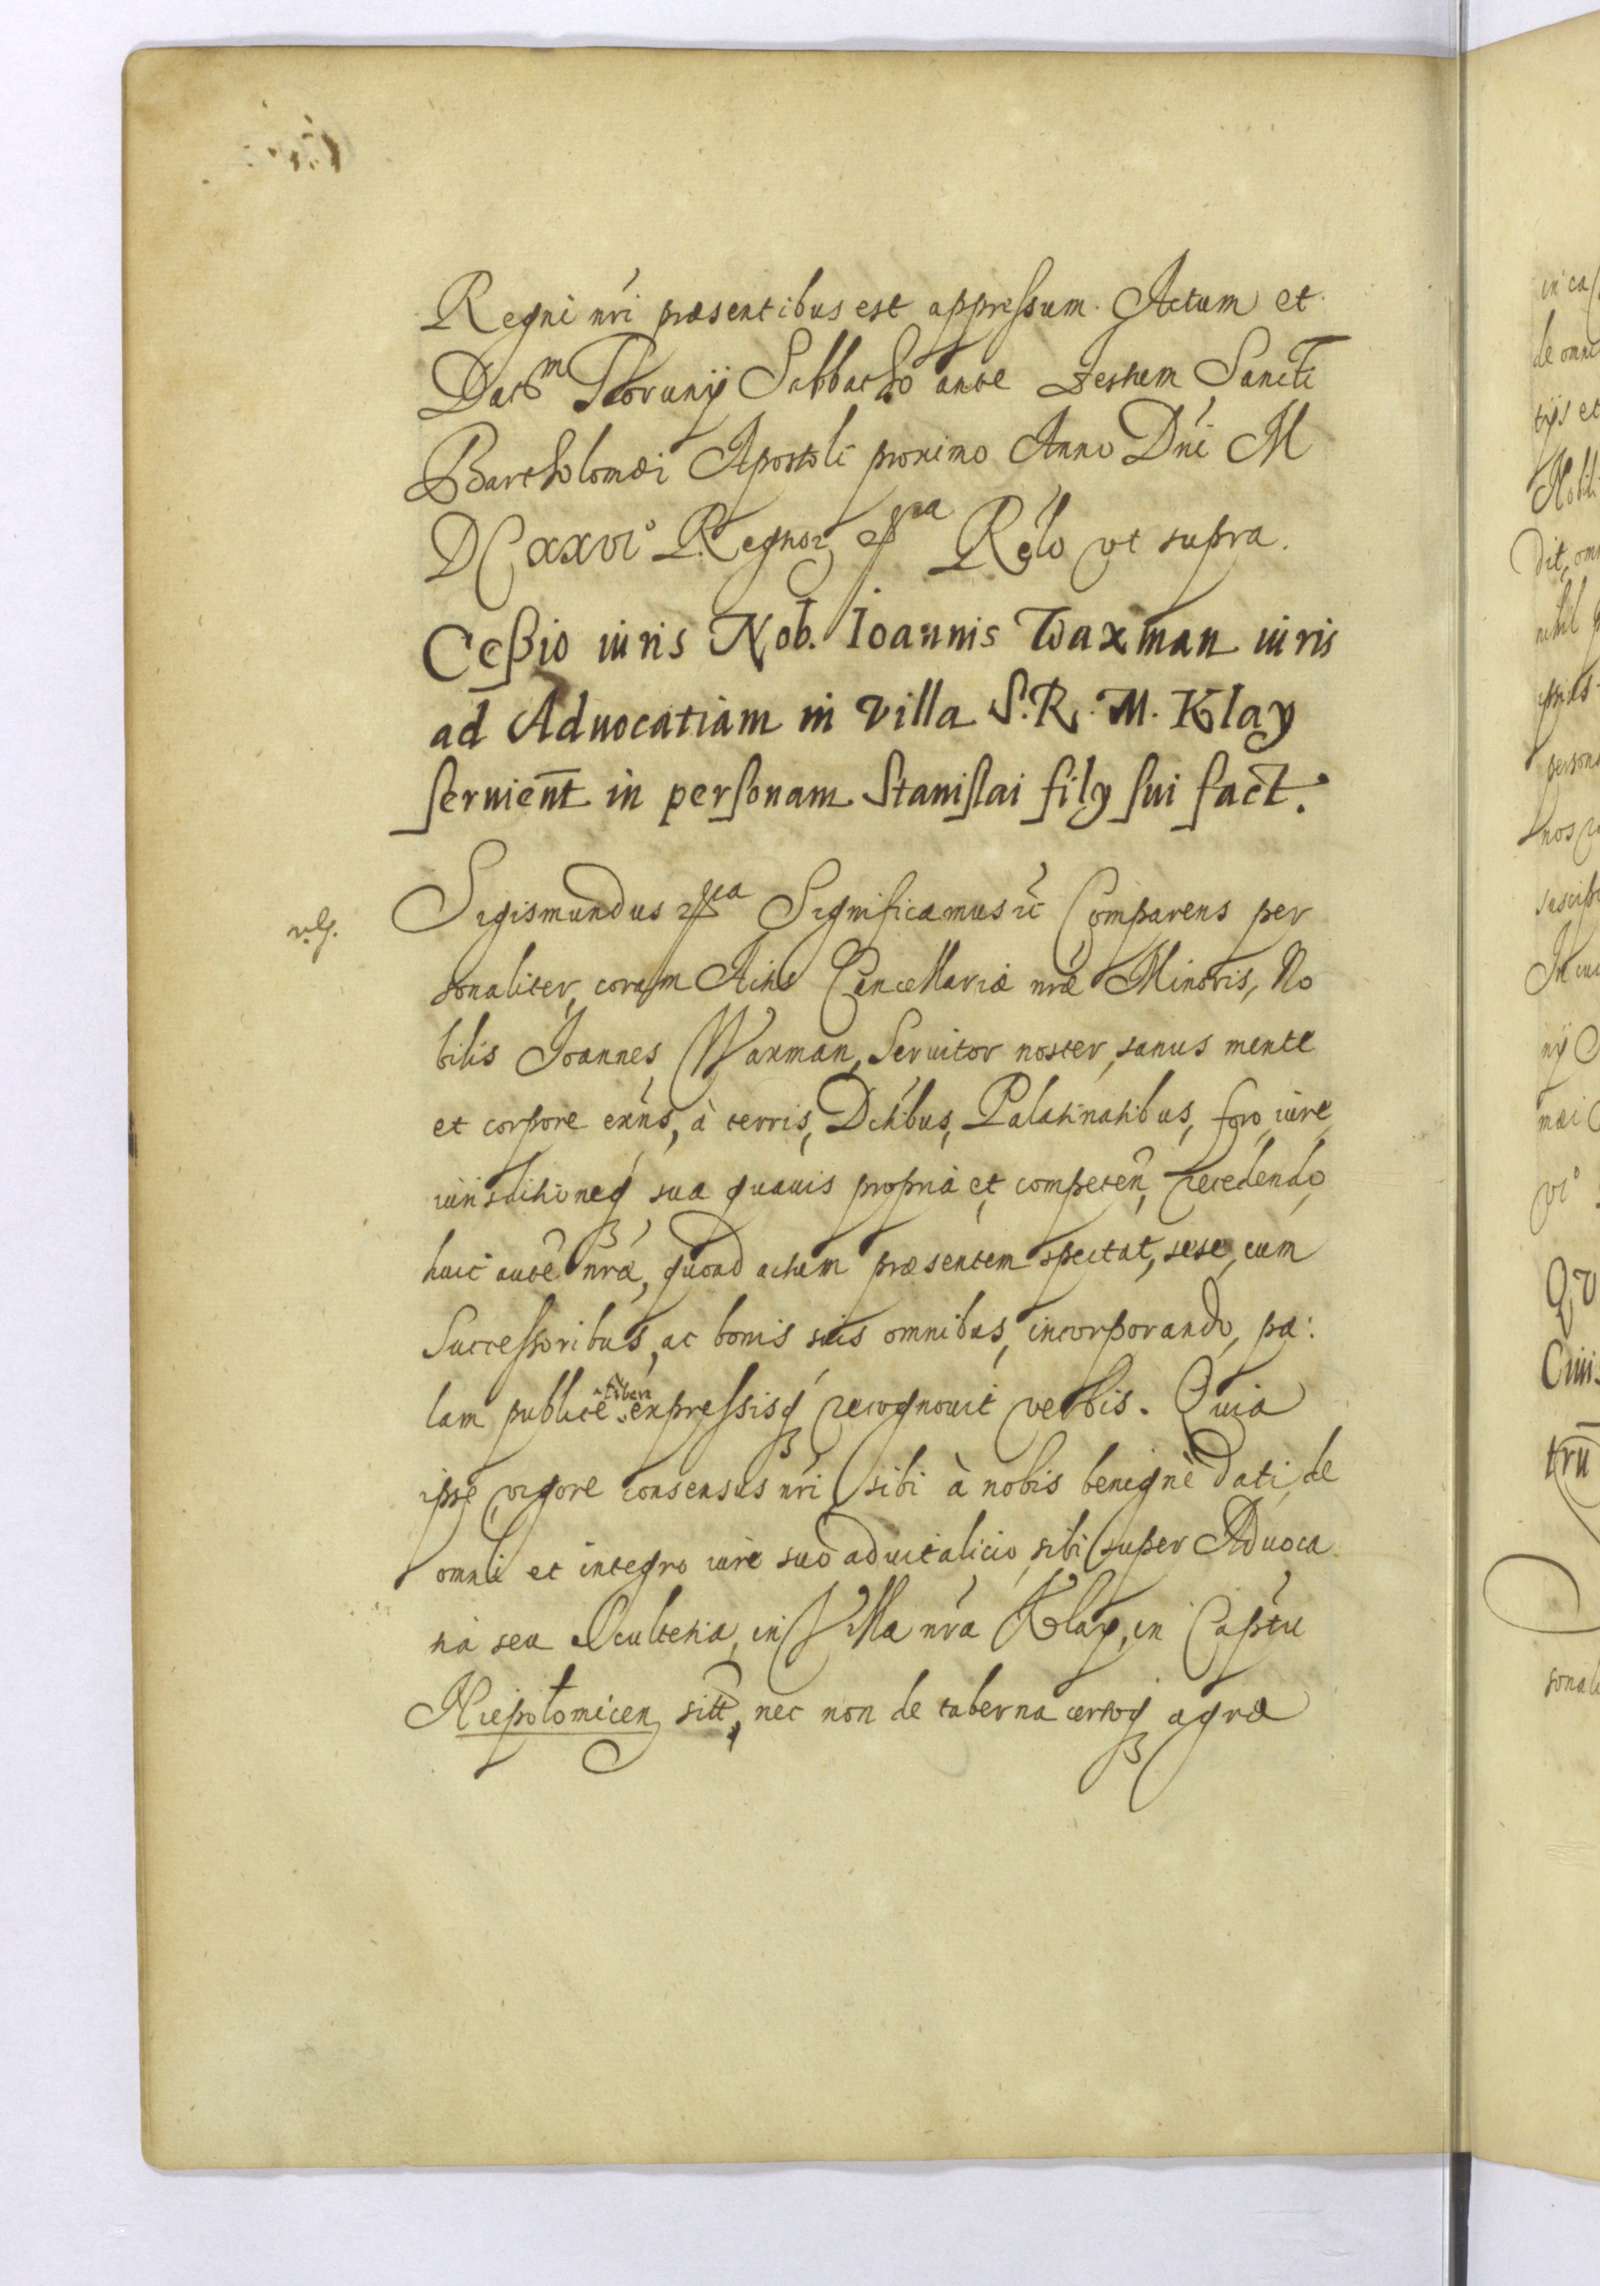 Regni nri præsentibus est appressum. Actum et
Datm Thorunij Sabbatho ante Festum Sancti
Bartholomæi Apostoli proximo Anno Dni M
DCXXVI° Regnor Relo ut supra.
Cessio iuris Nob. Ioannis Waxman iuris
ad Aduocatiam in villa S. R. M. Klay
seruient in personam Stanislai filij sui fact.
Sigismundus Significamus Comparens per
sonaliter coram Actis Cancellariæ nræ Minoris, No
bilis Joannes Waxman, Seruitor noster, sanus mente
et corpore exñs, à terris, Dctibus, Palatinatibus, foro iure
iurisditioneq sua quauis propria et competen recedendo
huic aute nræ, quoad actum præsentem spectat, sese, cum
Successoribus, ac bonis suis omnibus, incorporando, pa:
lam publice libere expressisq recognouit verbis. Quia
ipse vigore consensus nri sibi à nobis benignè dati, de
omni et integro iure suo aduitalicio, sibi super Aduoca
tia seu Scultetia, in Villa nra Klay, in Capstu
Niepolomicen sitt, nec non de taberna certoq agro